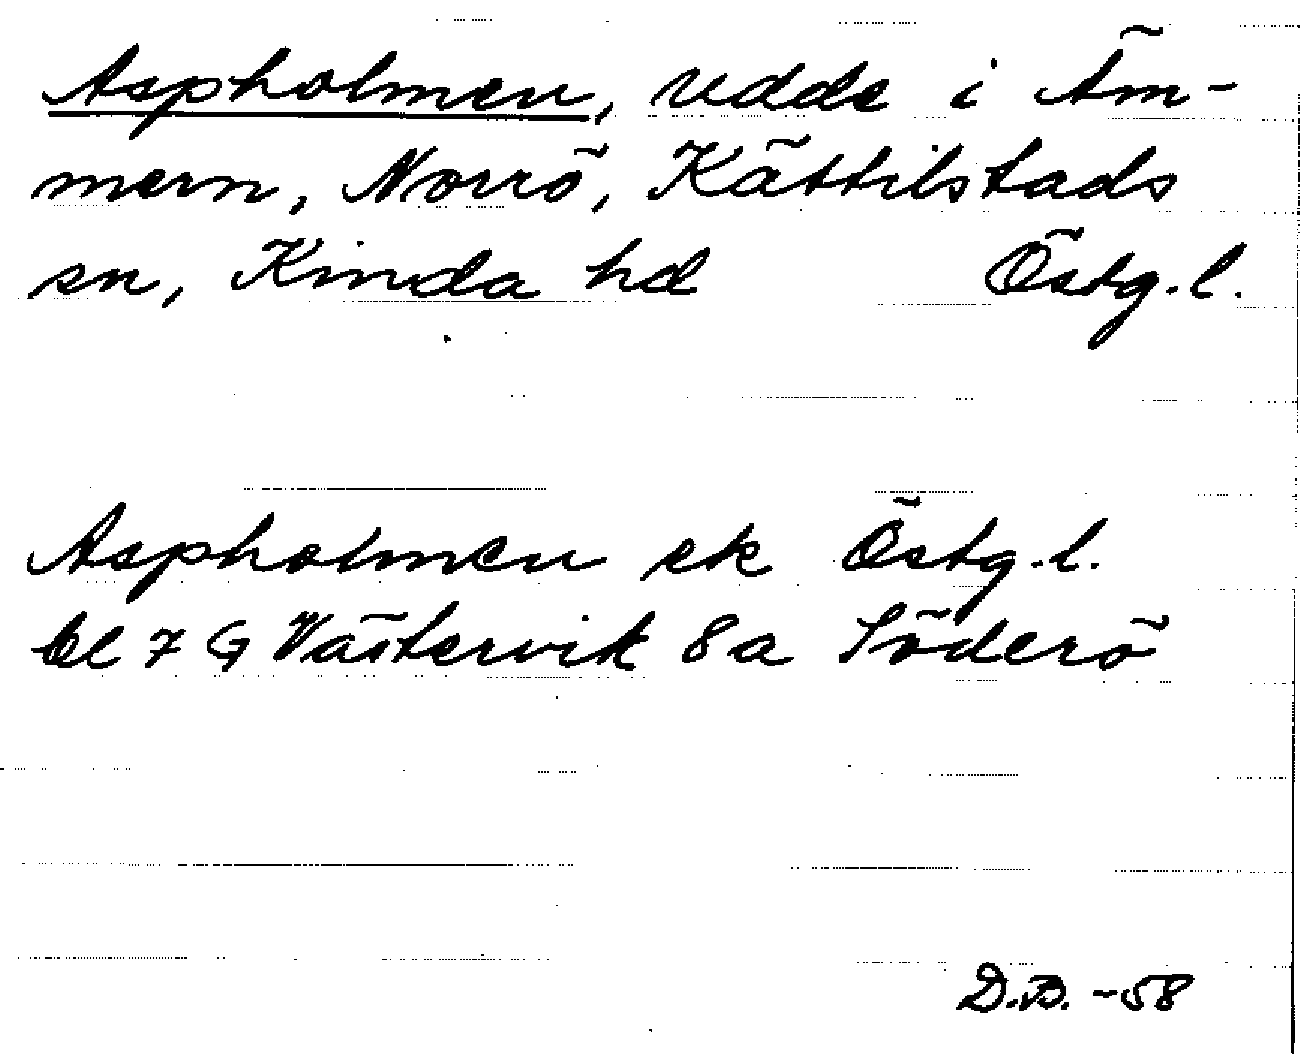 Aspholmen, udde i Äm-
mern, Norrö, Kättilstads
sn, Kinda hd Östg.l.
Aspholmen ek Östg.l.
bl 7 G Västervik 8a Söderö
D.B. -58